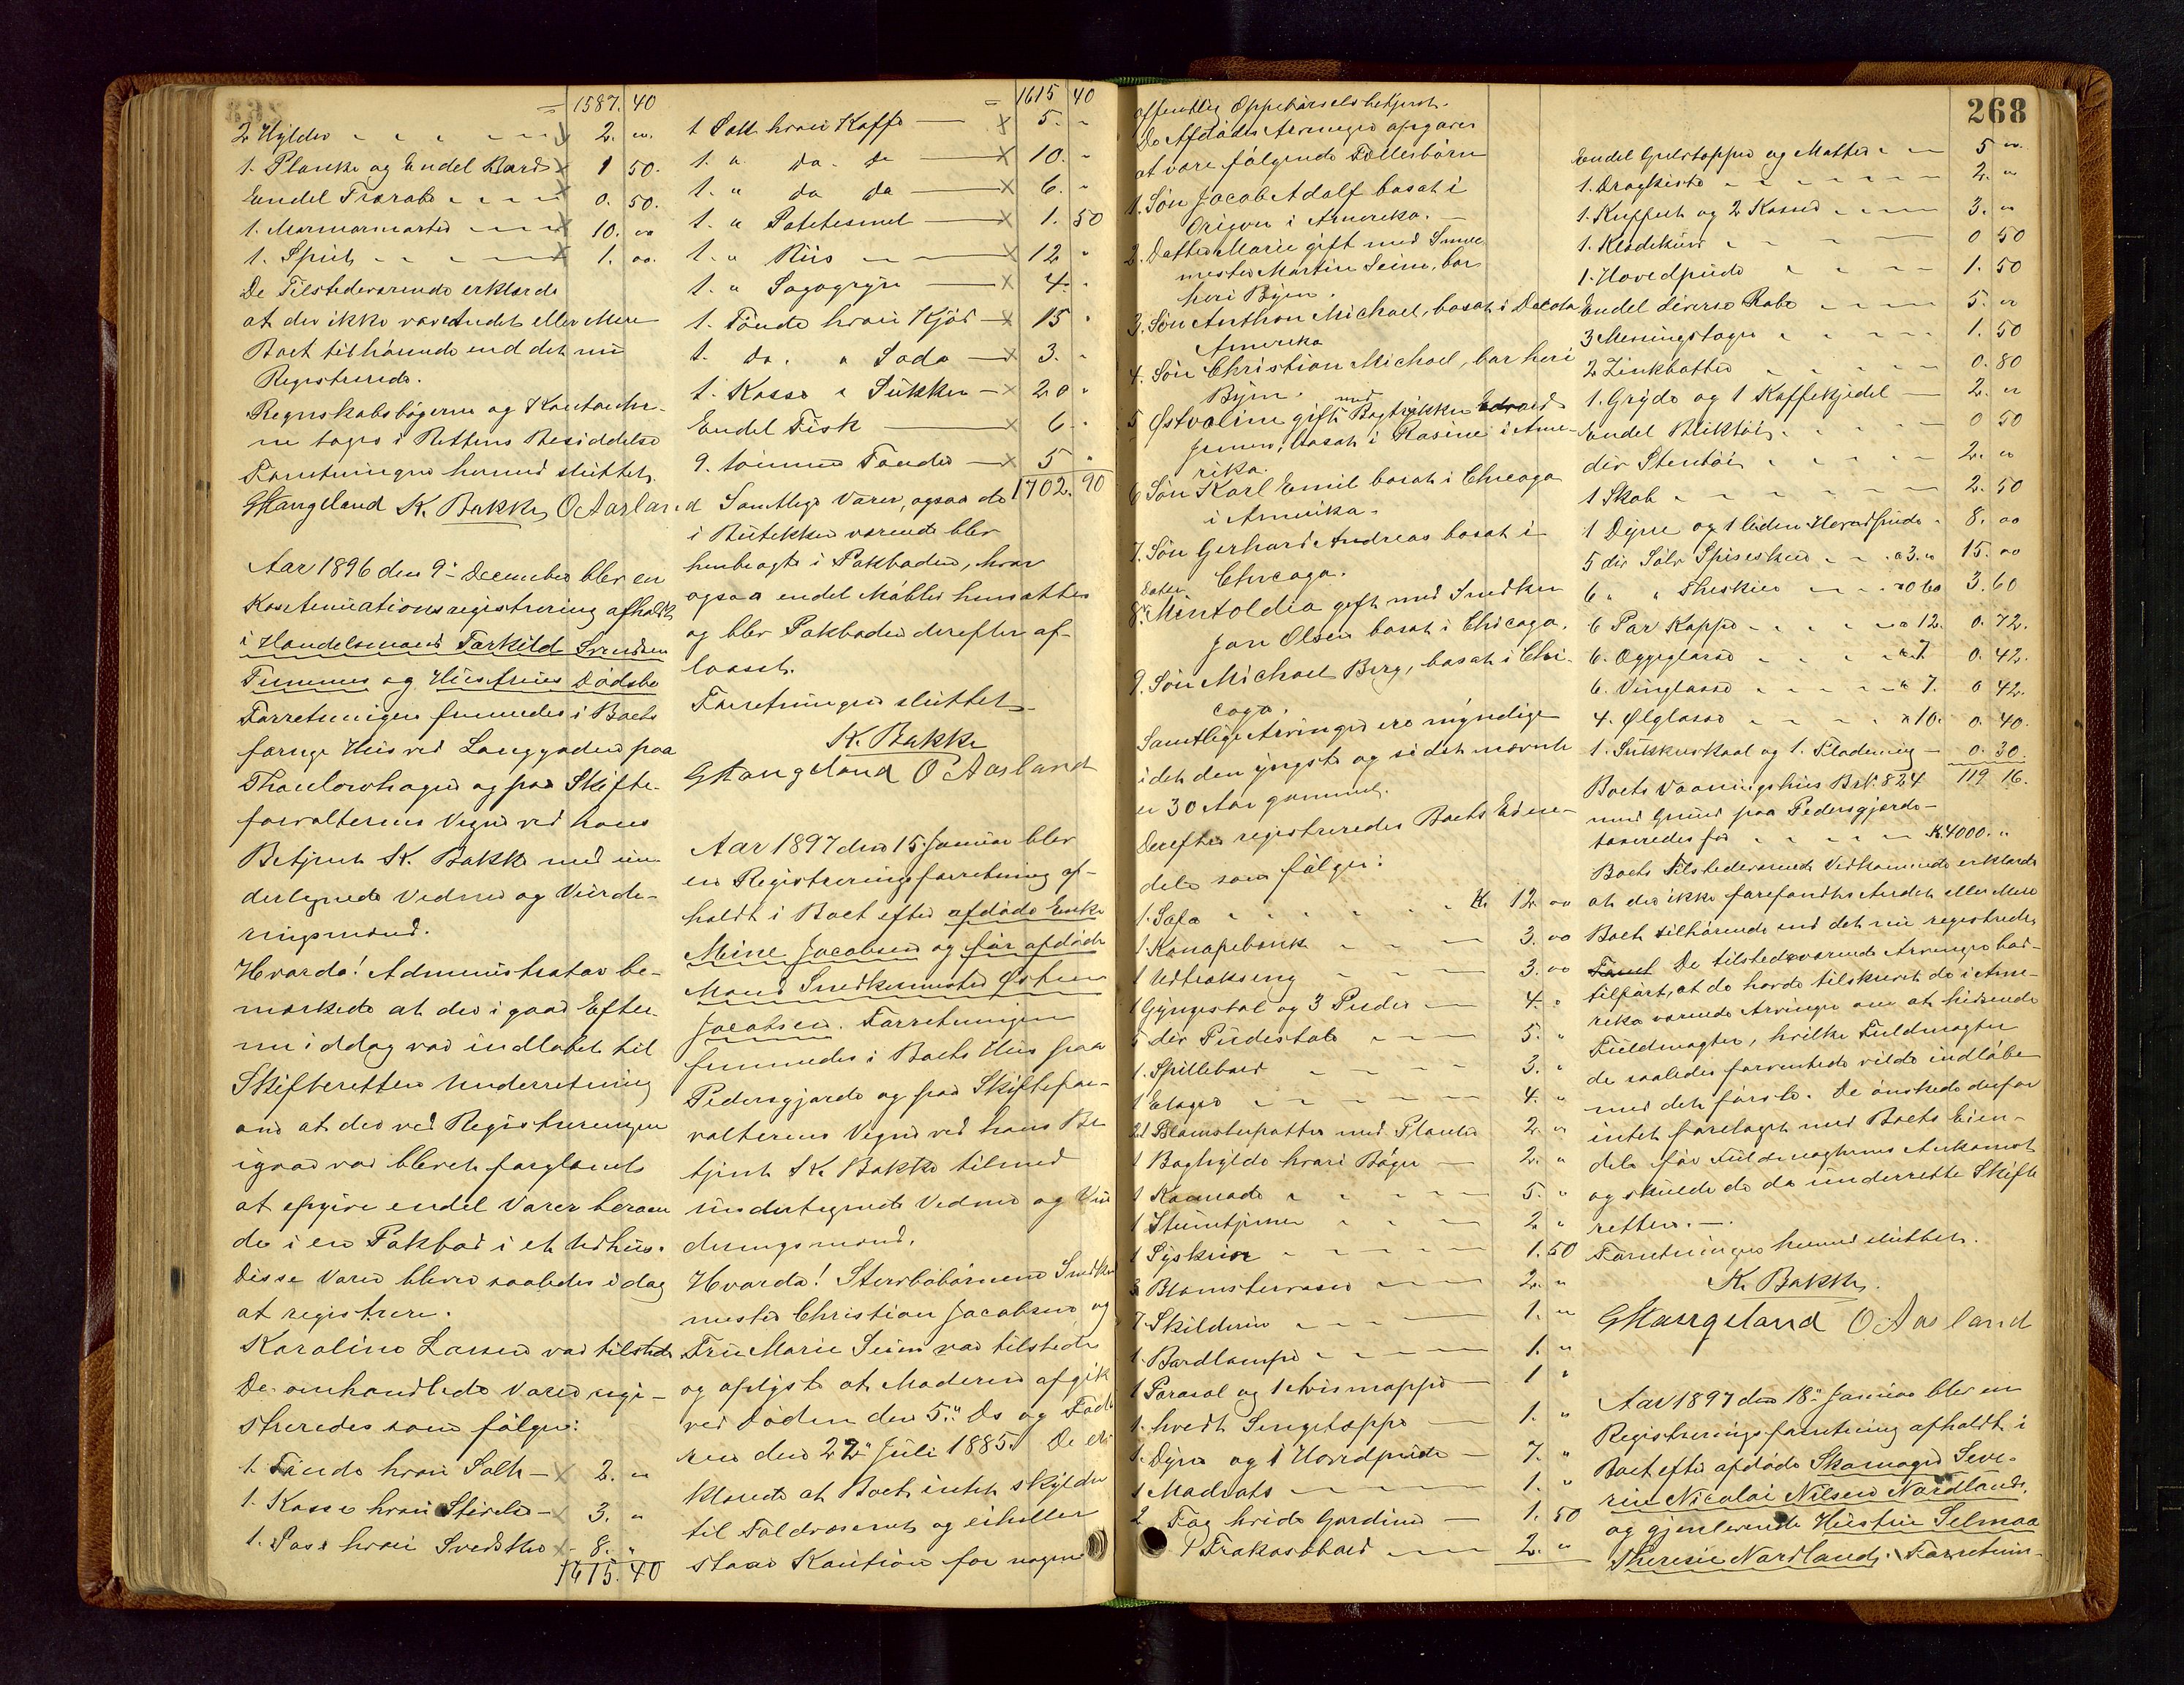 = 1587. 40
2 Hylder - - - - - x 2. "
1. Planke og Endel Bord x 1 50.
Endel Trærabe - - - x 0. 50.
1. Marmormorter - - - x 10. oo
1. Spids - - - - x 1. oo.
De Tilstedeværende erklærede
at der ikke var Andet eller Mere
Boet tilhørende end det nu
Registrerede.
Regnskabsbøgerne og Kontanter-
ne toges i Rettens Besiddelse
Forretningen hermed sluttet.
GStangeland K. Bakke, O Aasland
Aar 1896 den 9de December blev en
Kontinuationsregistrering afholdt
i Handelsmand Torkild Svendsen
Timmes og Hustrues Dødsbo
Forretningen fremmedes i Boets
forrige Huus ved Langgaden paa
Thaulowhagen og paa Skifte-
forvalterens Vegne ved hans
Betjent K. Bakke med un-
dertegnede Vidner og Vurde-
ringsmænd.
Hvorda! Administrator be-
mærkede at der i gaar Efter-
middag var indløbet til
Skifteretten Underretning
om at der ved Registreringen
igaar var blevet forglemt
at opgive endel Varer beroen-
de i en Pakbod i et Udhus.
Disse Varer bleve saaledes idag
at registrere.
Karoline Larsen var tilstede
De omhandlede Varer regi-
streredes som følger:
1. Tønde hvori Salt - x 2. "
1. Kasse hvori Stivelse - x 3. "
1. Pose hvori Svedsker x - 8. "
1615. 40
= 1615 40
1 Sæk hvori Kaffe — x 5. "
1. " do. do — x 10. "
1. " do do — x 6. "
1. " Potetesmel — x 1. 50
1. " Riis — x 12 "
1. " Sagogryn — x 4. "
1. Tønde hvori Kjød - x 15 "
1. do. " Soda — x 3. "
1. Kasse " Sukker - x 20 "
Endel Fisk — x 6 "
9. tomme Tønder — x 5 "
1702. 90
Samtlige Varer, ogsaa de
i Butikken værende blev
henbragte i Pakboden, hvor
ogsaa endel Møbler hensattes
og blev Pakboden derefter af-
laaset.
Forretningen sluttet.
K. Bakke
GStangeland O Aasland
Aar 1897 den 15 Januar blev
en Registreringsforretning af-
holdt i Boet efter afdøde Enke
Mine Jacobsen og før afdøde
Mand Snedkermester Østen
Jacobsen. Forretningen
fremmedes i Boets Hus paa
Pedersgjerde og paa Skiftefor-
valterens Vegne ved hans Be-
tjent K. Bakke tilmed
undertegnede Vidner og Vur-
deringsmænd.
Hvorda! Stervbobørnene Snedker
mester Christian Jacobsen og
Fru Marie Seim var tilstede
og oplyste at Moderen afgik
ved Døden den 5te Ds og Fade-
ren den 27de Juli 1885. De er-
klærede at Boet intet skylder
til Toldvæsenet og eiheller
staar Kaution for nogen
offentlig Oppebørselsbetjent.
De Afdødes Arvinger opgaves
at være følgende Fællesbørn
1. Søn Jacob Adolf bosat i
Origon i Amerika.
2. Datter Marie gift med Snme-
mester Martin Seim, bor
heri Byen.
3. Søn Anthon Michael, bosat i Dacota
Amerika
4. Søn Christian Michael, bor heri
Byen.
5 Østvaline gift med Bogtrykker Edvard
Jensen, bosat i Rasine i Ame-
rika.
6 Søn Karl Emil bosat i Chicago
i Amerika.
7. Søn Gerhard Andreas bosat i
Chicago.
Datter
8. Mintoldia gift med Snedker
Jon Olsen bosat i Chicago.
9. Søn Michael Berg, bosat i Chi-
cago.
Samtlige Arvinger ere myndige
idet den yngste og sidst nævnte
er 30 Aar gammel.
Derefter registreredes Boets Eien-
dele som følger:
1. Sofa - - - - Kr 12 oo
1 Kanapebænk - - - 3. oo
1 Udtrækseng - - - 3. oo
1 Gyngestol og 3 Puder - 4. "
5 dir Pudestole - - - 5. "
1. Spillebord - - - - 3. "
1 Etager - - - - - 4. "
21 Blomsterpotter med Planter 2. "
1 Boghylde hvori Bøger - 2. "
1 Komode - - - - 5. "
1 Stumtjener - - - - 2 "
1 Syskrin - - - - 1. 50
3 Blomstervaser - - - 2. "
7 Skilderier - - - 1. "
1. Bordlampe - - - - 1. "
1 Parasol og 1 Avismappe - 1 "
1. hvidt Sengetæppe - 1. "
1. Dyne og 1 Hovedpude - 7. "
1 Madrats - - - - 1. "
2 Fag hvide Gardiner - 1. 50
1 Frokostbord - - - 2. "
268
Endel Gulvtæpper og Matter - - 5 "
1. Dragkiste - - - - - 2. "
1. Kuffert og 2 Kasser - - - 3. "
1. Klædekurv - - - - 0 50
1. Hovedpude - - - - 1. 50
Endel diverse Rabe - - - 5. "
3 Messingstager - - - - 1. 50
2 Zinkbøtter - - - - 0. 80
1. Gryde og 1 Kaffekjedel - 2. "
Endel Bliktøi - - - - 0 50
dir Stentøi - - - - 2. "
1 Skab - - - - - 2. 50
1 Dyne og 1 liden Hovedpude - 8. oo
5 dir Sølv Spiseskeer - - a 3. " 15. oo
6 " " Theskeer - - - a 0 60 3. 60
6 Par Koppe - - - - a 12. 0. 72.
6. Eggeglasse - - - - a 7 0. 42.
6. Vinglasse - - - - a 7. 0 42.
4. Ølglasse - - - - a 10. 0. 40.
1. Sukkerskaal og 1. Flødemug - 0. 30.
119 16.
Boets Vaaningshus Br№ 824
med Grund paa Pedersgjerde -
taxeredes for - - - - Kr. 4000. "
Boets tilstedeværende Vedkommende erklærede
at der ikke forefandtes Andet eller Mere
Boet tilhørende end det nu registrerede.
De tilstedeværende Arvinger bad
tilført, at de havde tilskrevet de i Ame-
rika værende Arvinger om at hidsende
Fuldmagter, hvilke Fuldmagter
de saaledes forventede vilde indløbe
med det første. De ønskede derfor
intet foretaget med Boets Eien-
dele før Fuldmagternes Ankomst
og skulde de da underrette Skifte
retten. —
Forretningen hermed sluttet.
K. Bakke.
GStangeland O Aasland
Aar 1897 den 18de Januar blev en
Registreringsforretning afholdt i
Boet efter afdøde Skomager Seve-
rin Nicolai Nilsen Nordlands,
og gjenlevende Hustru Selmaa
Theresie Nordland. Forretnin-